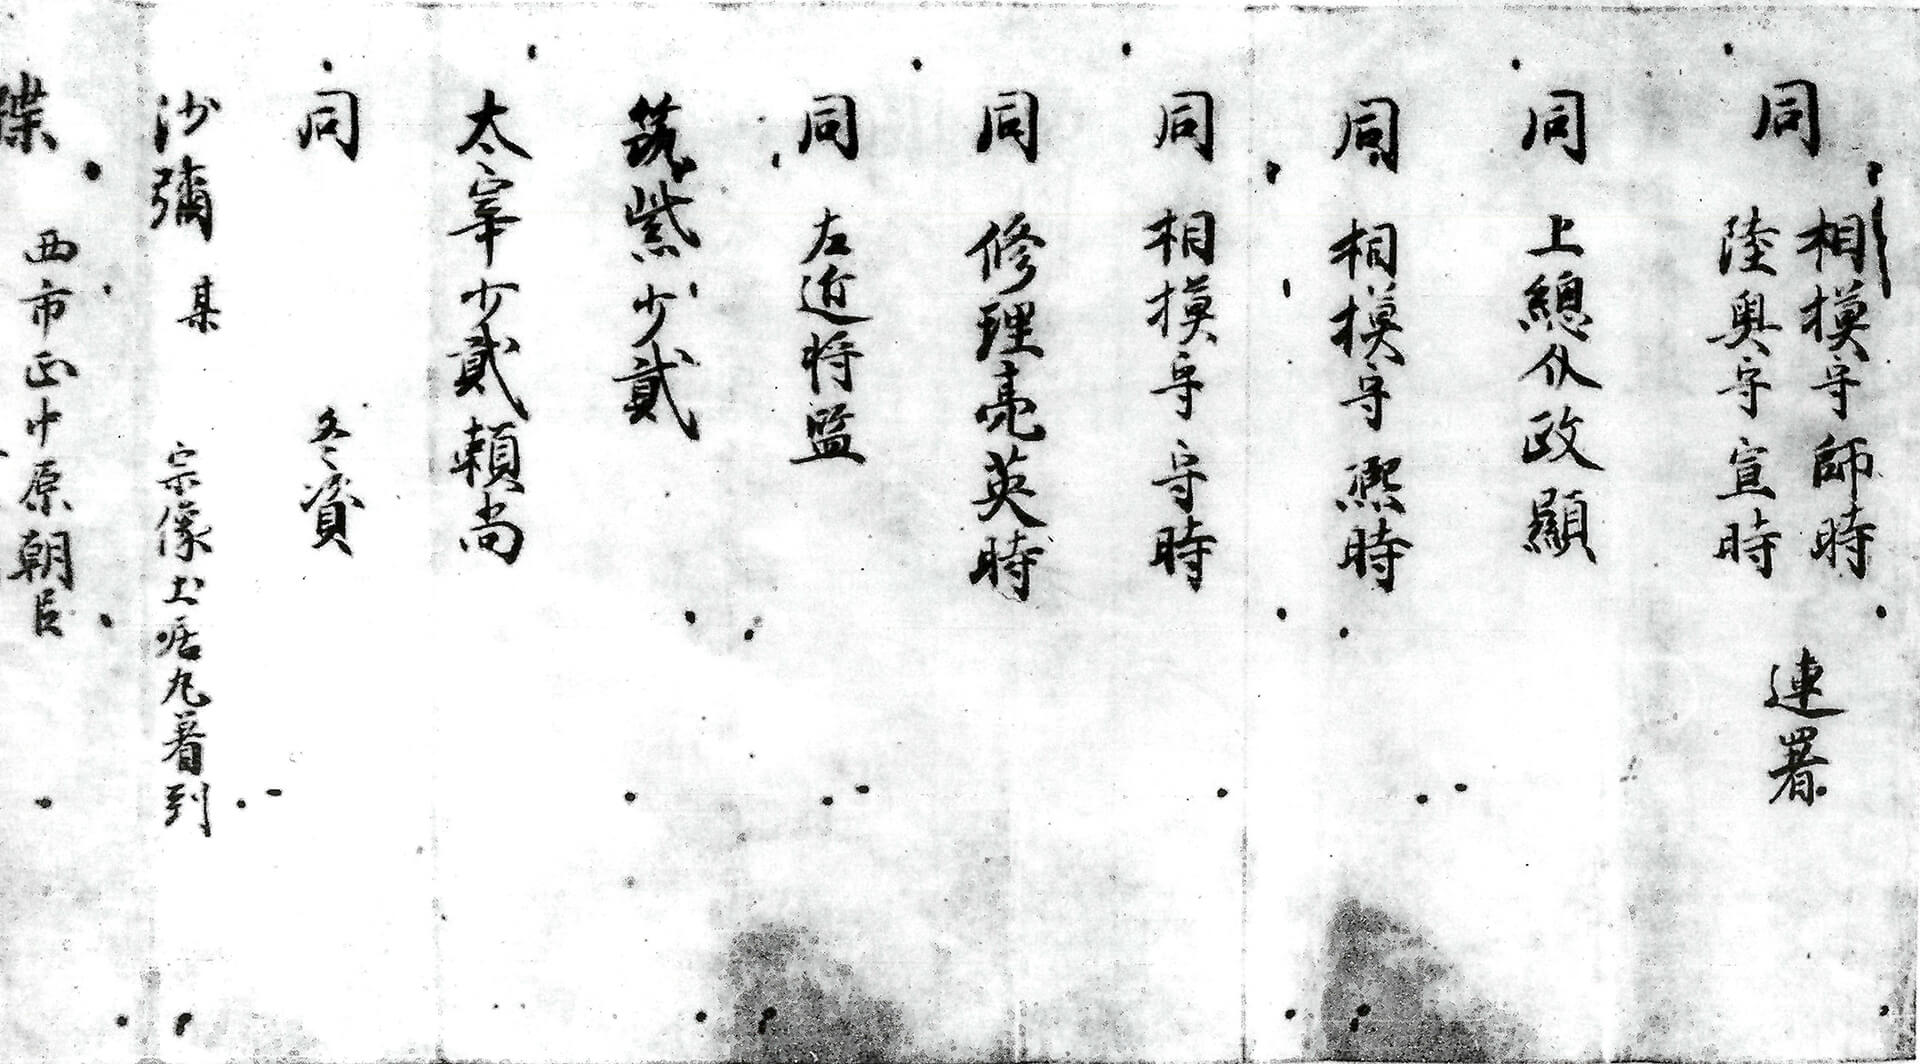 同 相模守師時
陸奥守宣時 連署
同 上總介政顯
同 相模守凞時
同 相摸守守時
同 修理亮英時
同 左近将監
筑紫少貳
太宰少貳頼尚
同 冬資
沙彌 某 宗像土居丸着到
牒 西市正中原朝臣